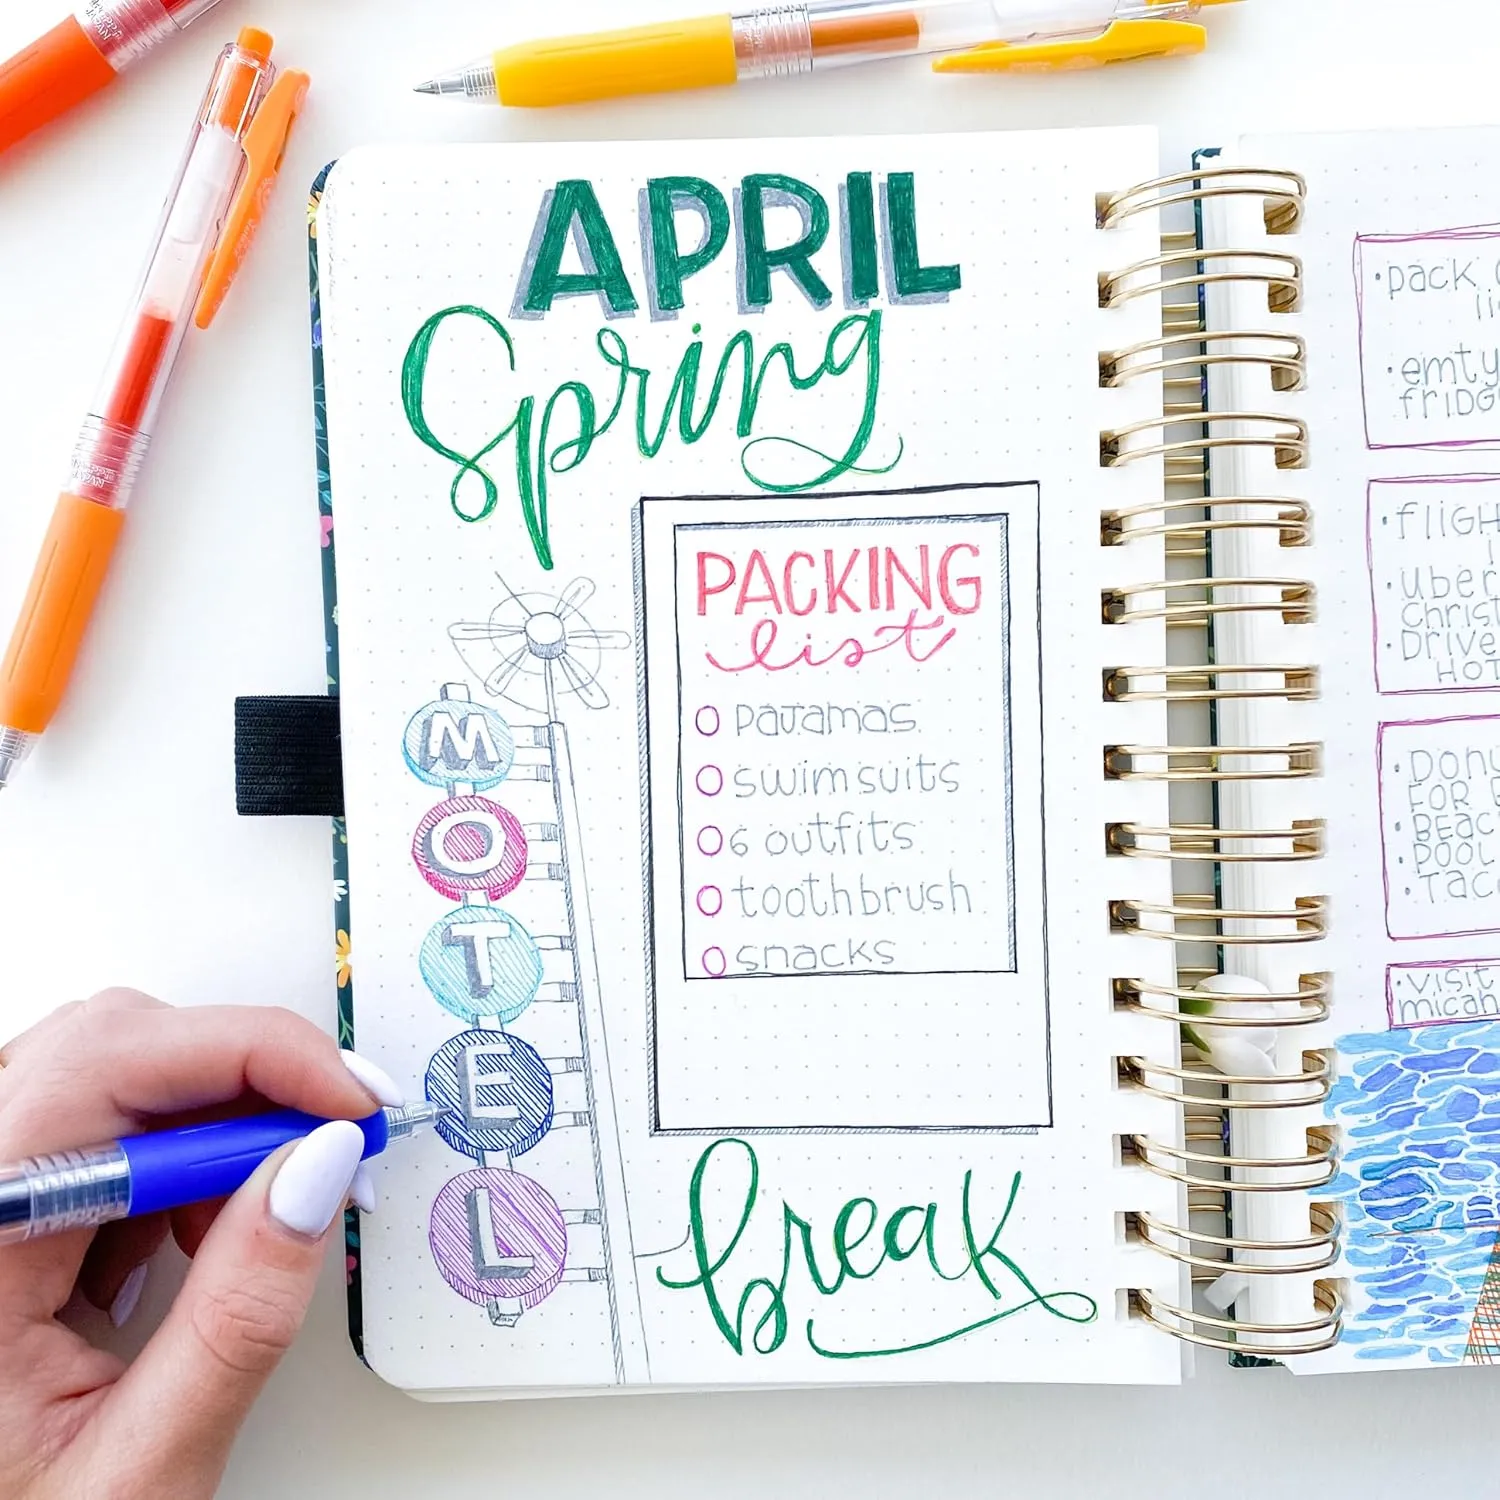 APRIL
Spring
PACKING
list
paJamas
swimsuits
6 outfits
toothbrush
snacks
MOTEL
break
•pack
•emty
friDG
•fliGH
•uber
christ
•Drive
HOT
•Donu
FOR
BEAC
•POOL
•TAC
•visit
micah
JAPAN
JAPAN